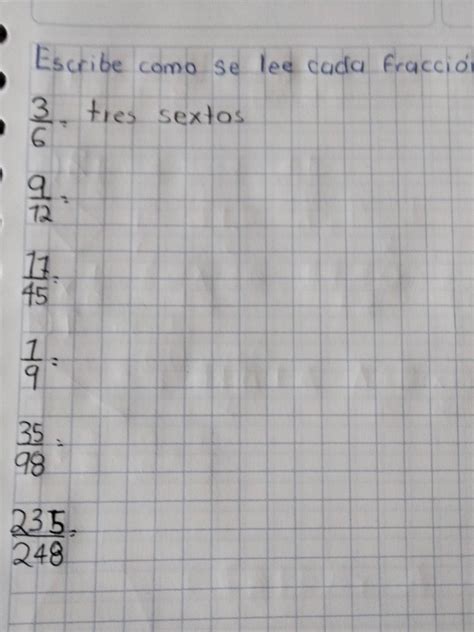 Escribe como se lee cada fracción
3/6 = tres sextos
9/12 =
17/45 =
1/9 =
35/98 =
235/248 =